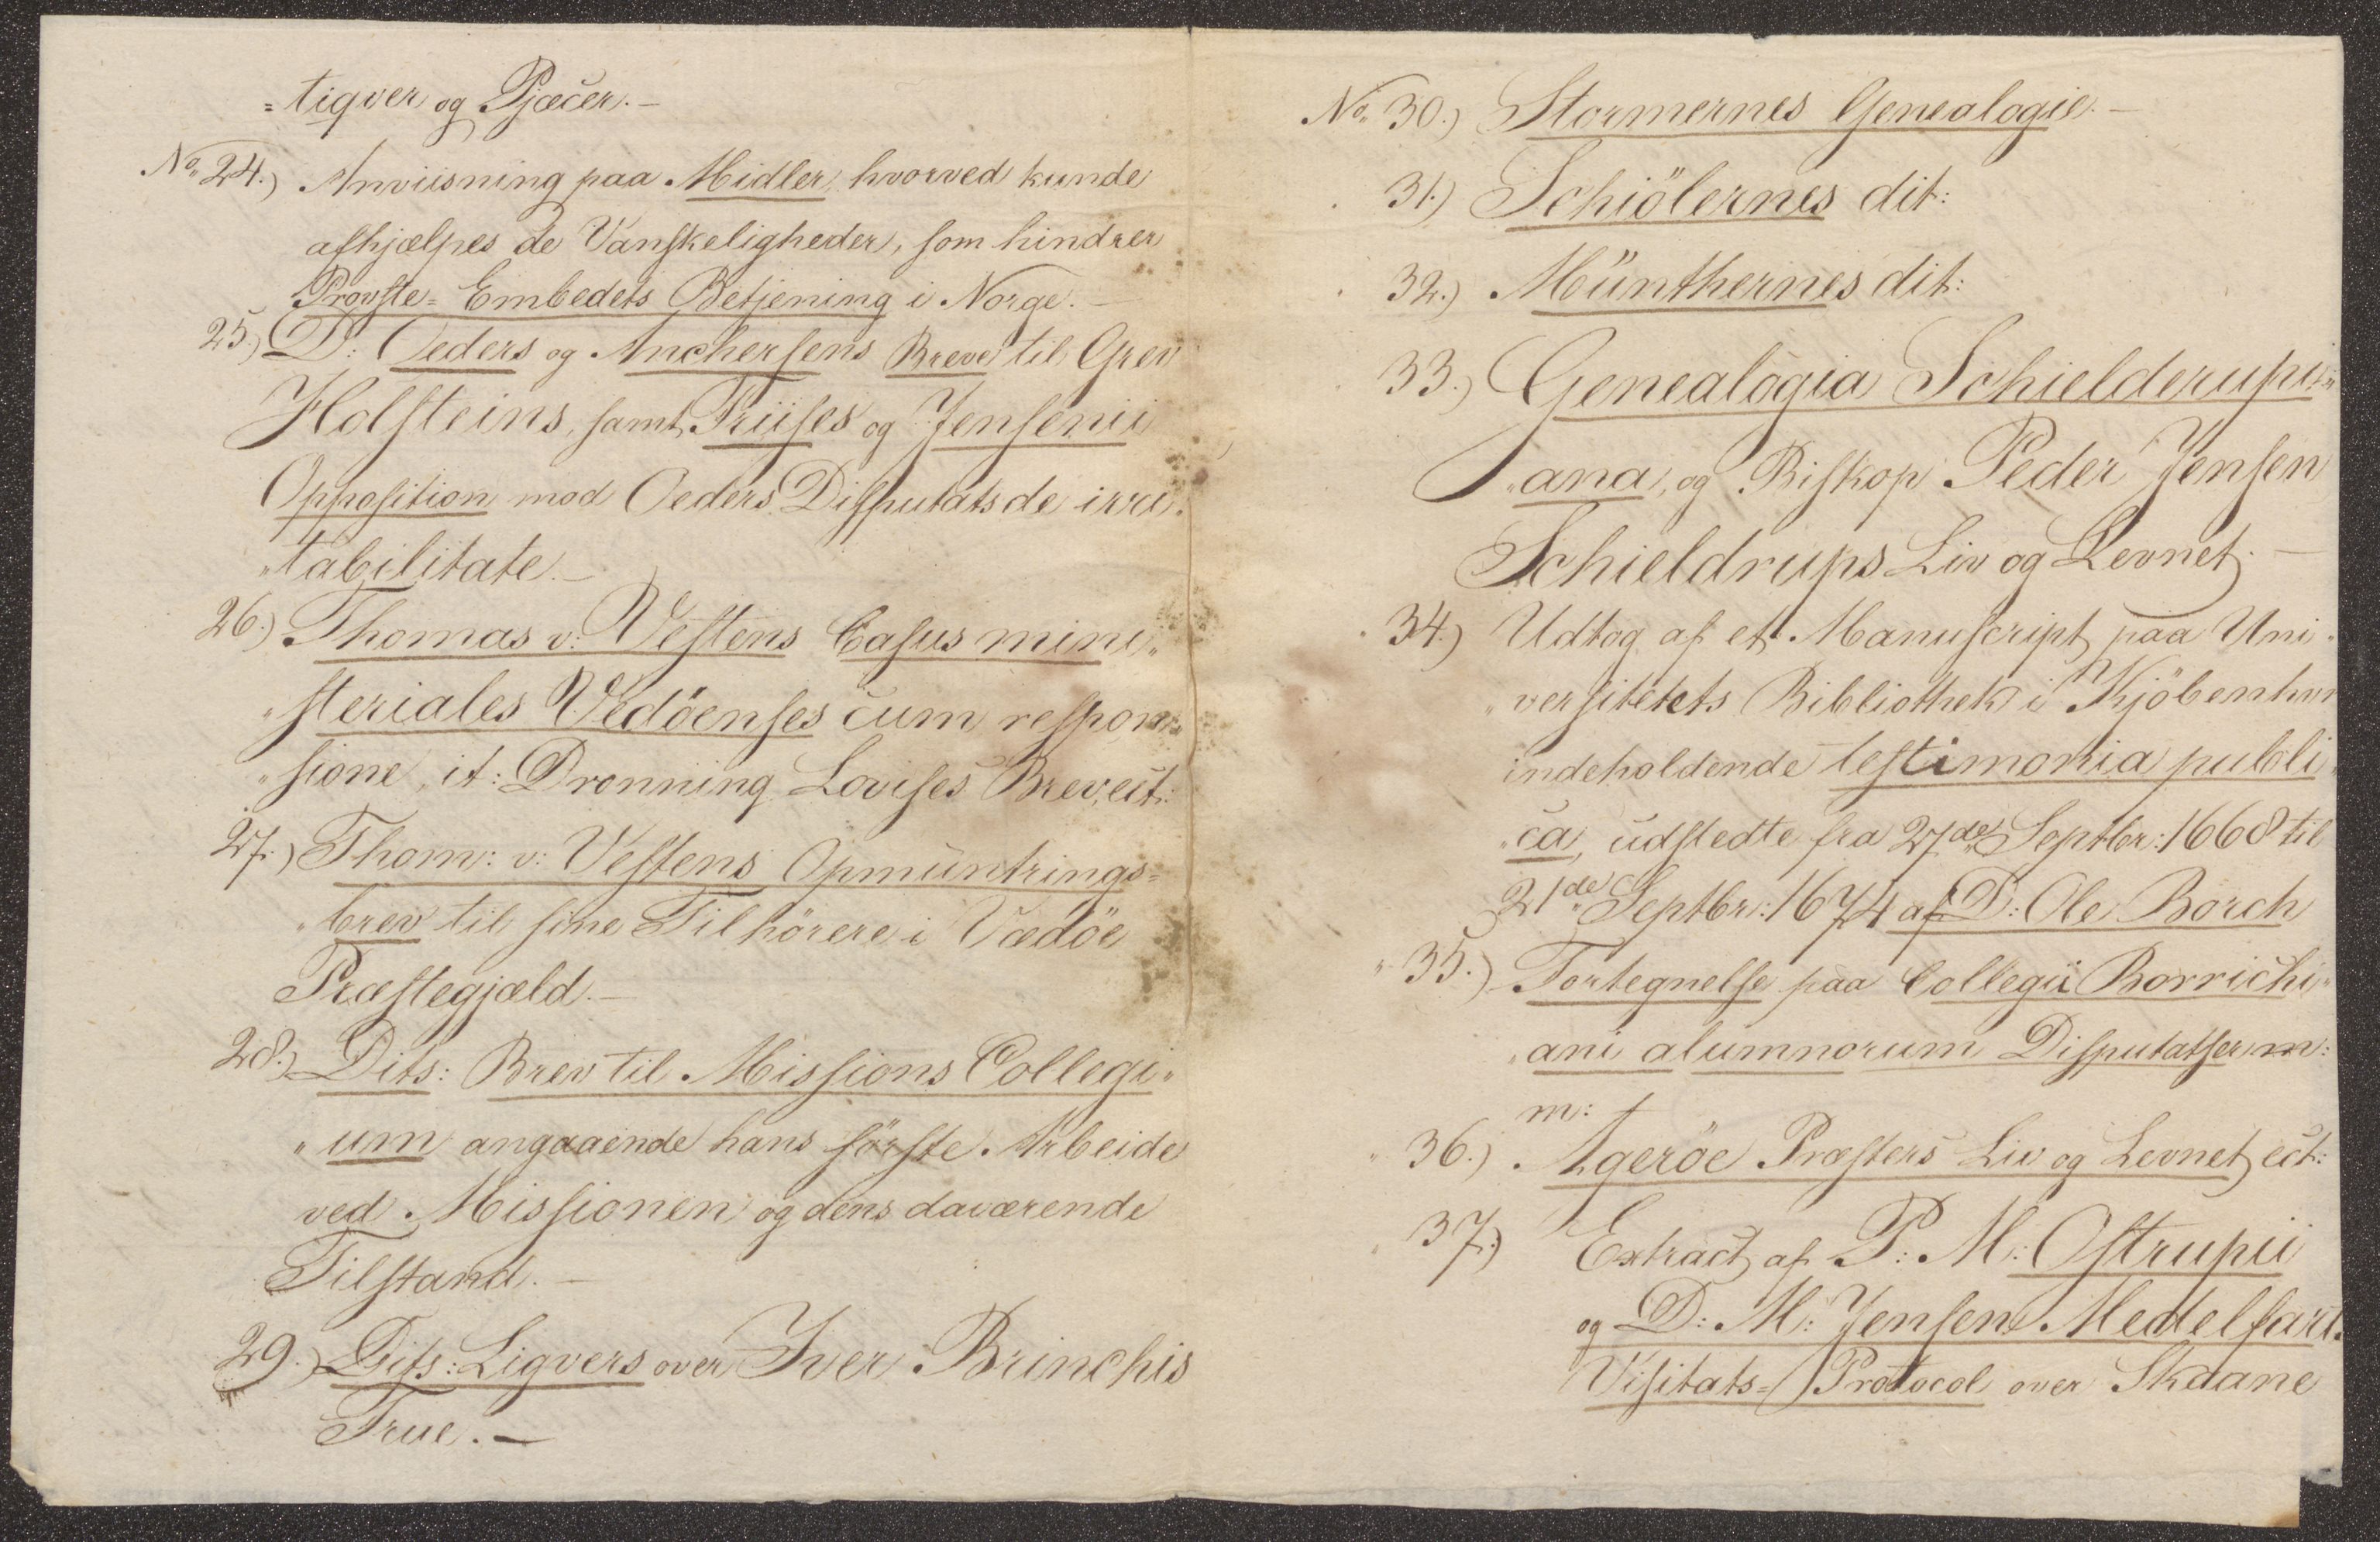 =tiqver og Pjæcer.-
No. 24.) Anviisning paa Midler, hvorved kunde
afhjælpes de Vanskeligheder, som hindrer
Provste=Embedets Betjening i Norge.-
25.) D: Oeders og Anchersens Breve til Grev
Holsteins, samt Friises og Jensenii
Opposition mod Oeders Disputats de irri„
„tabilitate.-
26.) Thomas v: Vestens Casus mini„
„steriales Vedöenses cum respon„
„sione, it: Dronning Lovises Brev, ect:
27.) Thom: v: Vestens Opmuntrings=
„brev til sine Tilhörere i Vædöe
Præstegjæld.-
28.) Dits: Brev til Missions Collegi„
„um angaaende hans förste Arbeide
ved Missionen og dens daværende
Tilstand.-
29.) Dits: Ligvers over Iver Brinchis
Frue.-
No. 30.) Stormernes Genealogie.-
31.) Schiölernes dit:
32.) Münthernes dit:
33.) Genealogia Schielderupi„
„ana, og Biskop Peder Jensen
Schieldrups Liv og Levnet.-
34.) Udtog af et Manuscript paa Uni„
„versitetets Bibliothek i Kjöbenhavn
indeholdende testimonia publi„
„ca, udstedte fra 27de Septbr: 1668 til
21de Septbr: 1674 af D: Ole Borch
„ 35.) Fortegnelse paa Collegii Borrichi„
„ani alumnorum Disputatser m:
m:
„ 36.) Ageröe Præsters Liv og Levnet, ect:
„ 37.) Extract af P: M: Ostrupii
og D: M: Jensen Medelfart.
Visitats=Protocol over Skaane